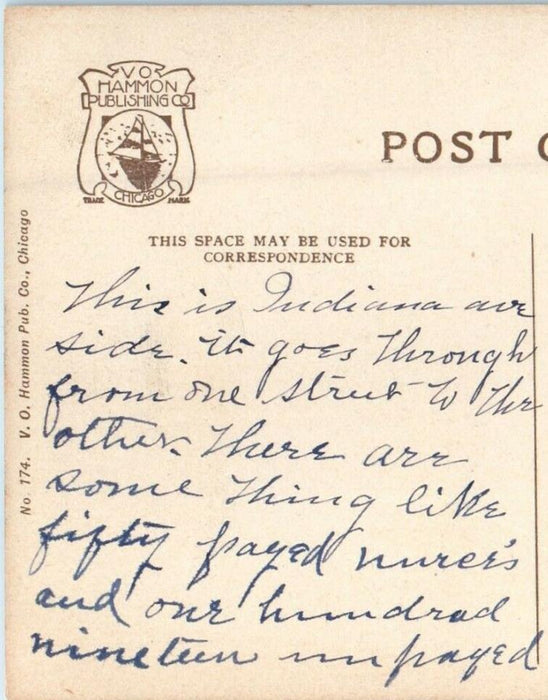 V O
HAMMON
PUBLISHING CO
CHICAGO
TRADE MARK
POST C
THIS SPACE MAY BE USED FOR
CORRESPONDENCE
No. 174. V. O. Hammon Pub. Co., Chicago
This is Indiana ave
side. it goes through
from one street to the
other. There are
some thing like
fifty payed nurce's
and one hundrad
nineteen unpayed